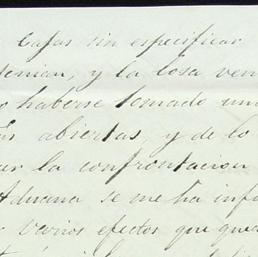 Cajas sin especificar
tenian, y la losa ven
haberse tomado un
abiertas, y de lo
la confrontacion
Aduana se me ha inf
varios efectos que que